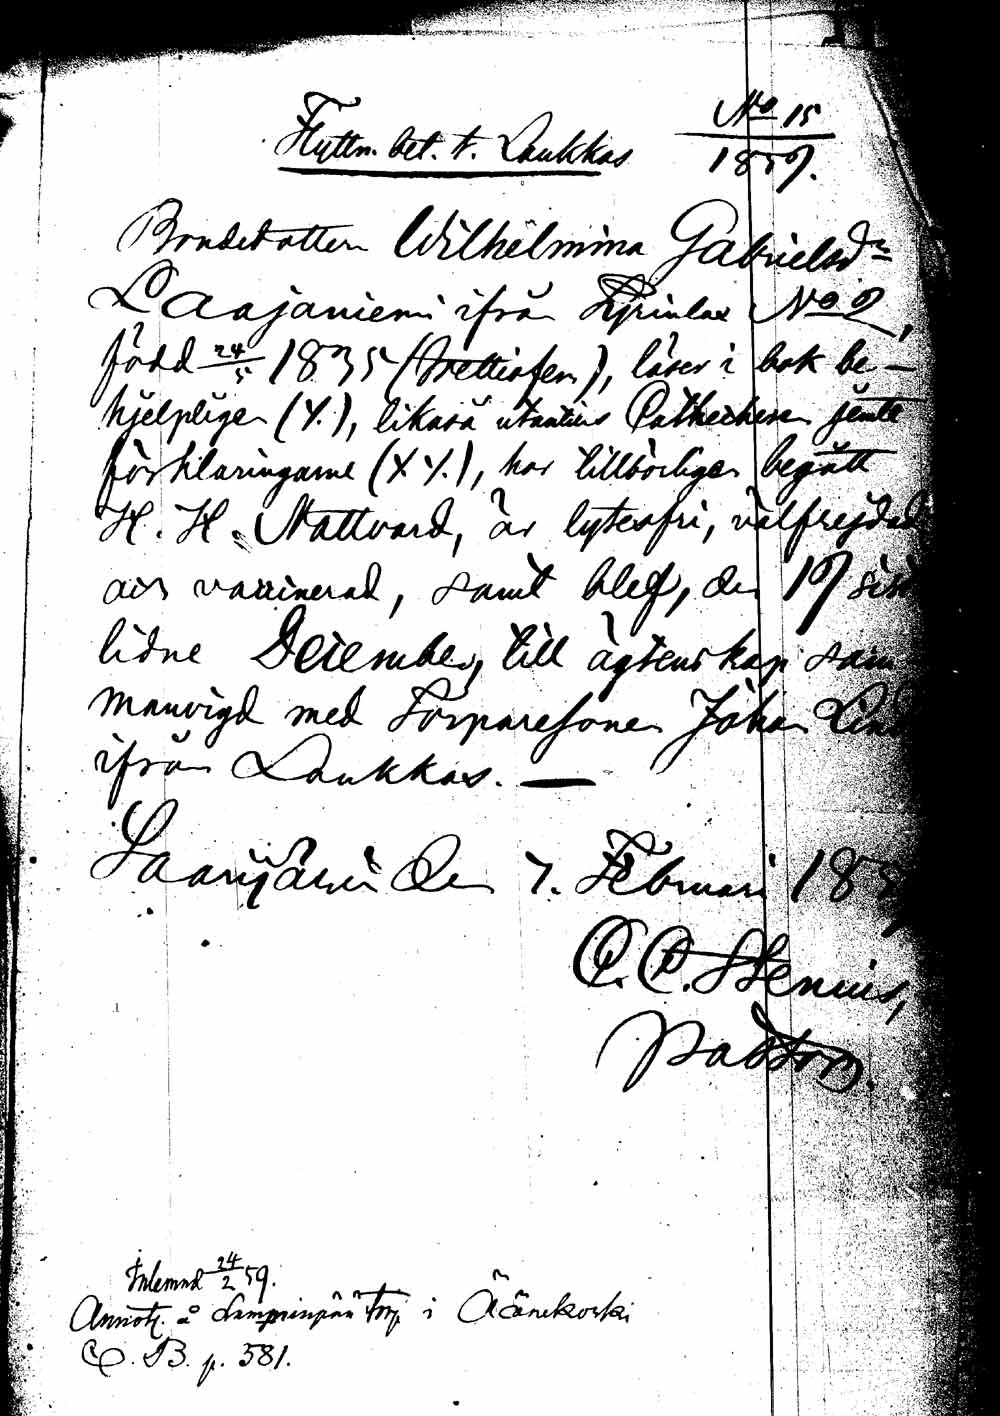 Flyttn. bet. t. Laukkas
No 15
1859.
Bondedottern Wilhelmina Gabrielsdr
Laajaniemi ifrån No 2,
född 24/5 1835 (trettiofem), läser i bok be-
hjelpligen (Y.), likaså utantill Cathechesen jemte
förklaringarne (X Y.), har tillbörligen begått
H. H. Nattvard, är lytesfri, välfrejdad
och vaccinerad, samt blef, den 17 sist
lidne December, till ägtenskap sam
manvigd med Torparesonen Johan Lind
ifrån Laukkas. —
Saarijärvi den 7. Februari 185
C. C. Stenius,
Pastor.
Inlemnad 24/2 59.
Annot. å Lamminpää torp i Äänekoski
C. B. p. 381.